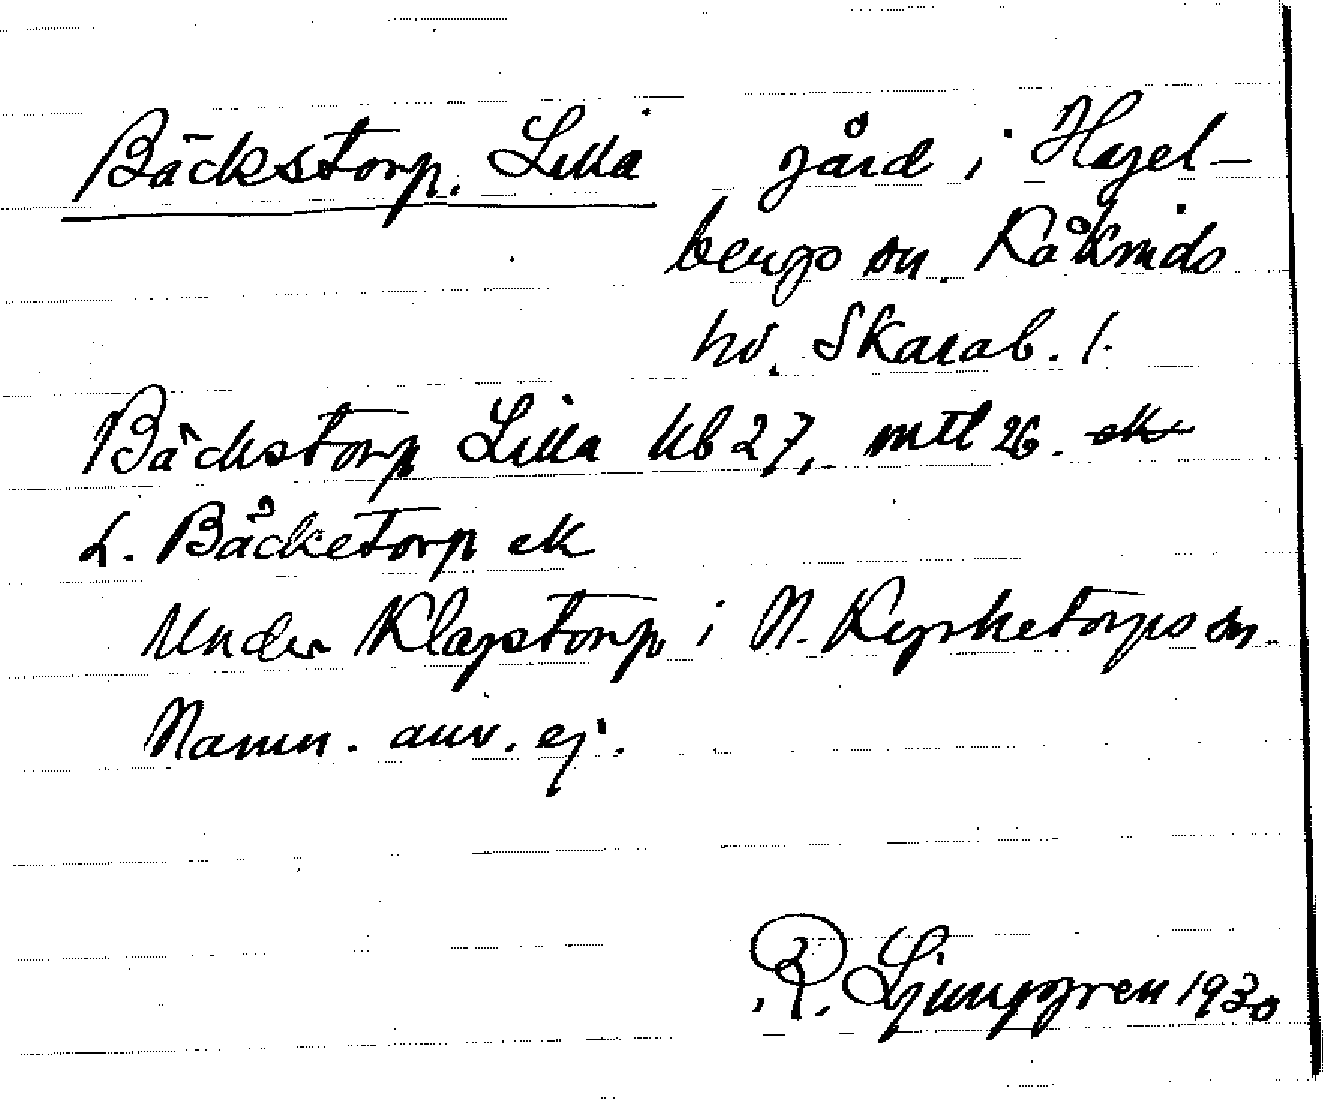 Bäckstorp. Lilla gård i Hagel-
bergs sn. Kåkinds
hd. Skarab. l.
Bäckstorp Lilla kb 27, mtl 26. ek
L. Bäcketorp ek
Under Klagstorp i N. Kyrketorps sn.
Namn. anv. ej.
R. Ljunggren 1930